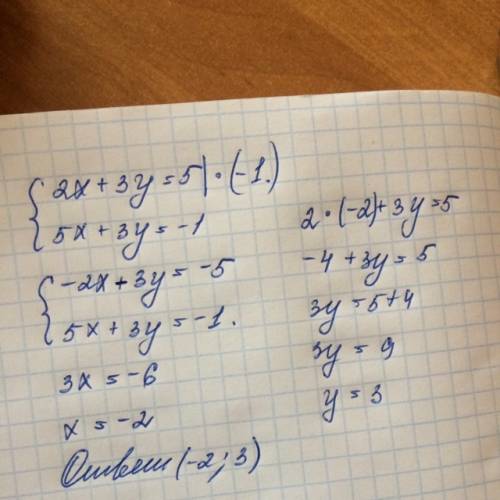 2x + 3y = 5 | · (-1.)
5x + 3y = -1
-2x + 3y = -5
5x + 3y = -1.
3x = -6
x = -2
Ответ (-2; 3)
2 · (-2) + 3y = 5
-4 + 3y = 5
3y = 5+4
3y = 9
y = 3